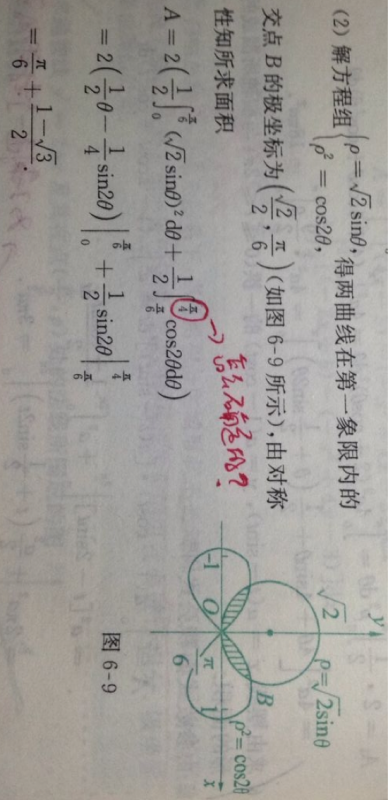 (2) 解方程组{ρ=√2sinθ, ρ²=cos2θ, 得两曲线在第一象限内的
交点 B 的极坐标为(√2/2, π/6)(如图 6-9 所示),由对称
性知所求面积
A = 2(1/2∫₀^{π/6}(√2sinθ)²dθ + 1/2∫_{π/6}^{π/4}cos2θdθ)
= 2(1/2θ − 1/4sin2θ)|₀^{π/6} + 1/2sin2θ|_{π/6}^{π/4}
= π/6 + (1−√3)/2.
y
√2
ρ=√2sinθ
B
ρ²=cos2θ
-1
O
π/6
1
x
图 6-9